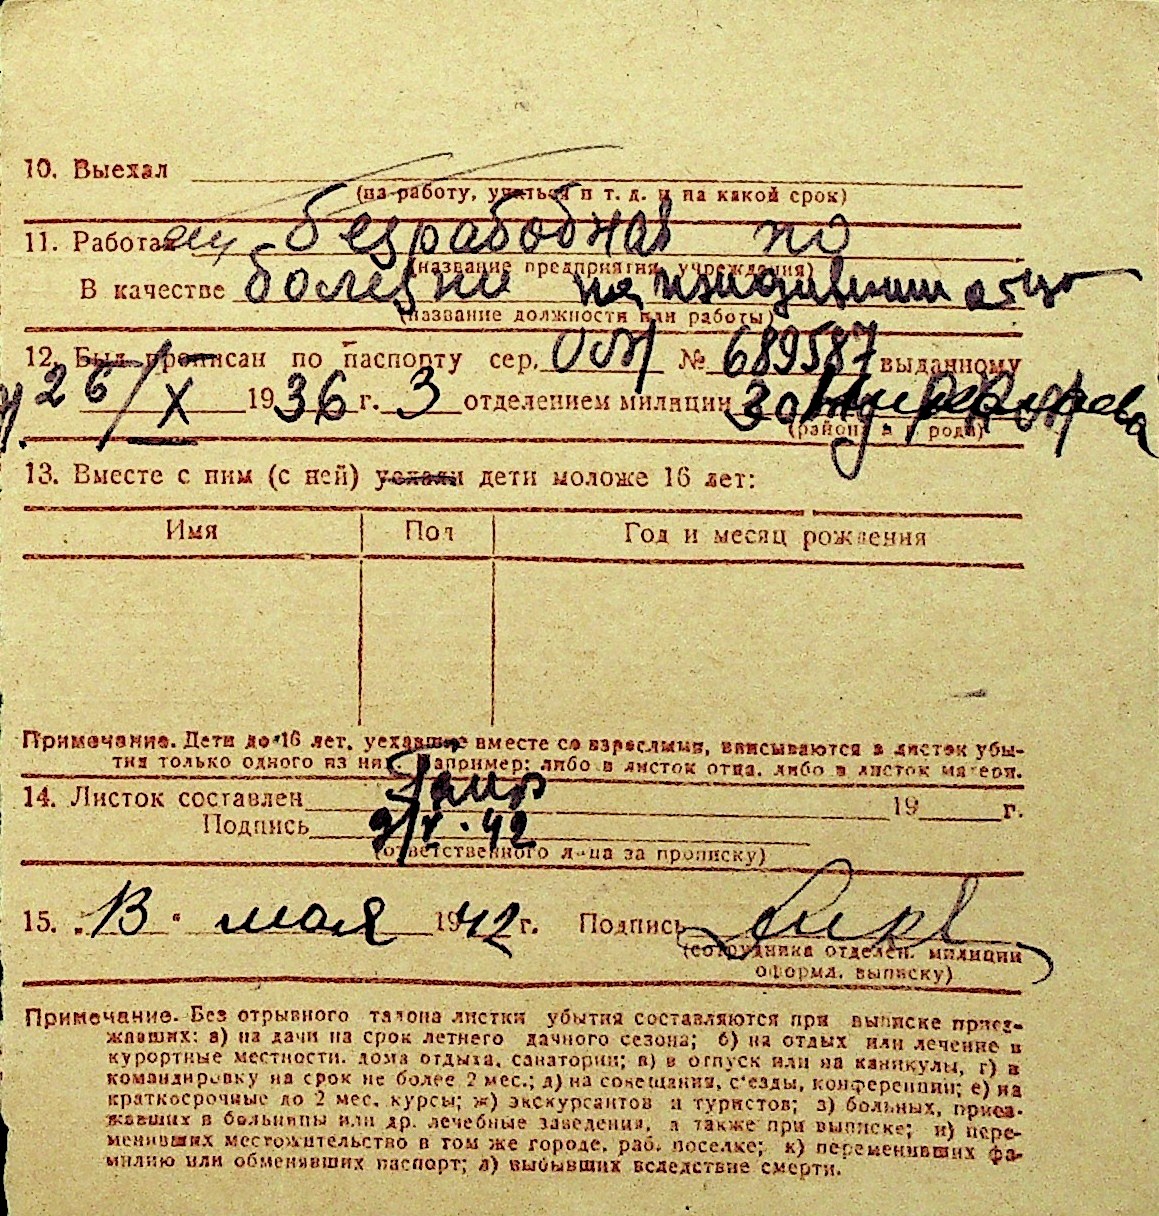 10. Выехал
(на работу, учиться и т. д. и на какой срок)
11. Работал безработная по
(название предприятия, учреждения)
В качестве болезни на иждивении отца
(название должности или работы)
12. Был прописан по паспорту сер. № 689587 выданному
26/X 1936 г. 3 отделением милиции
(района и города)
13. Вместе с ним (с ней) уехали дети моложе 16 лет:
Имя Пол Год и месяц рождения
Примечание. Дети до 16 лет, уехавшие вместе со взрослыми, вписываются в листок убы-
тия только одного из них. Например: либо в листок отца, либо в листок матери.
14. Листок составлен 19 г.
Подпись 9/V.42
(ответственного лица за прописку)
15. „13" мая 1942 г. Подпись
(сотрудника отделен. милиции
оформл. выписку)
Примечание. Без отрывного талона листки убытия составляются при выписке приез-
жавших: а) на дачи на срок летнего дачного сезона; б) на отдых или лечение в
курортные местности, дома отдыха, санатории; в) в отпуск или на каникулы, г) в
командировку на срок не более 2 мес.; д) на совещания, с'езды, конференции; е) на
краткосрочные до 2 мес. курсы; ж) экскурсантов и туристов; з) больных, приез-
жавших в больницы или др. лечебные заведения, а также при выписке; и) пере-
менивших местожительство в том же городе, раб. поселке; к) переменивших фа-
милию или обменявших паспорт; л) выбывших вследствие смерти.